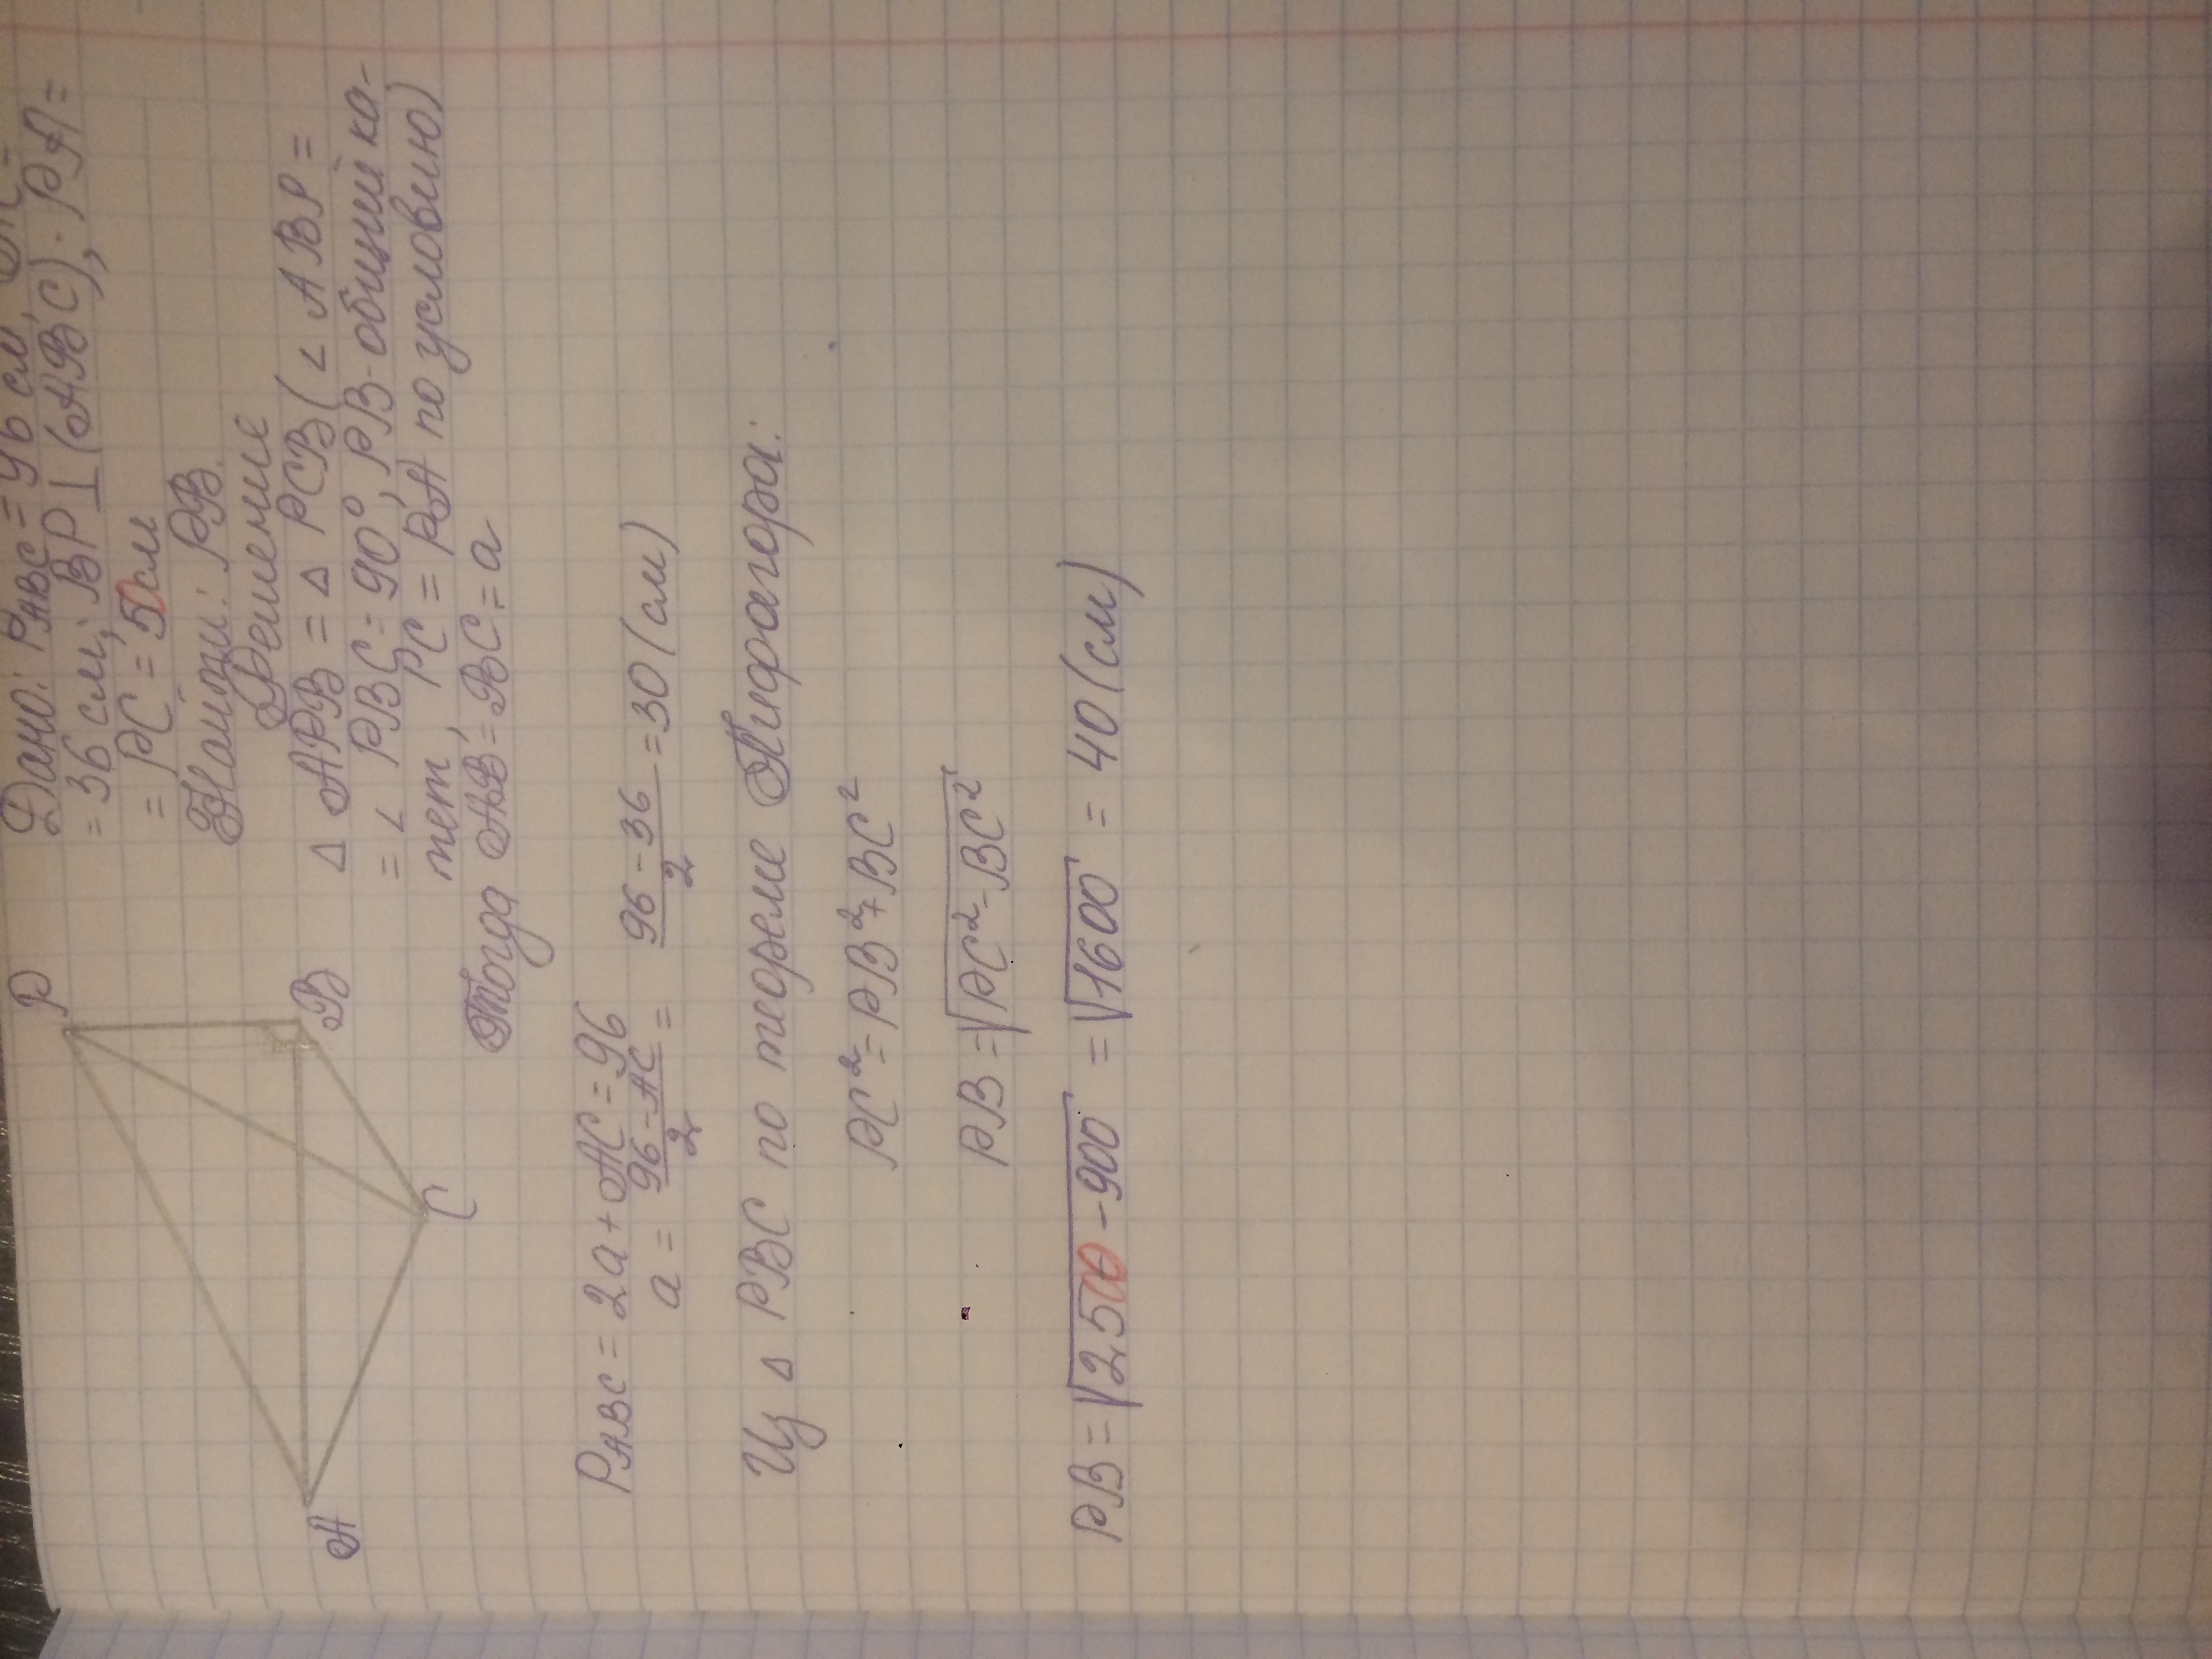 Дано: PABC = 96 см, AC =
= 36 см; BP ⊥ (ABC), PA =
= PC = 50см
Найти: PB.
Решение
P
A
B
C
△ APB = △ PCB (∠ ABP =
= ∠ PBC = 90°, PB - общий ка-
тет, PC = PA по условию)
Тогда AB = BC = a
PABC = 2a + AC = 96
a = (96 - AC)/2 = (96 - 36)/2 = 30 (см)
Из △ PBC по теореме Пифагора:
PC² = PB² + BC²
PB = √(PC² - BC²)
PB = √(2500 - 900) = √1600 = 40 (см)